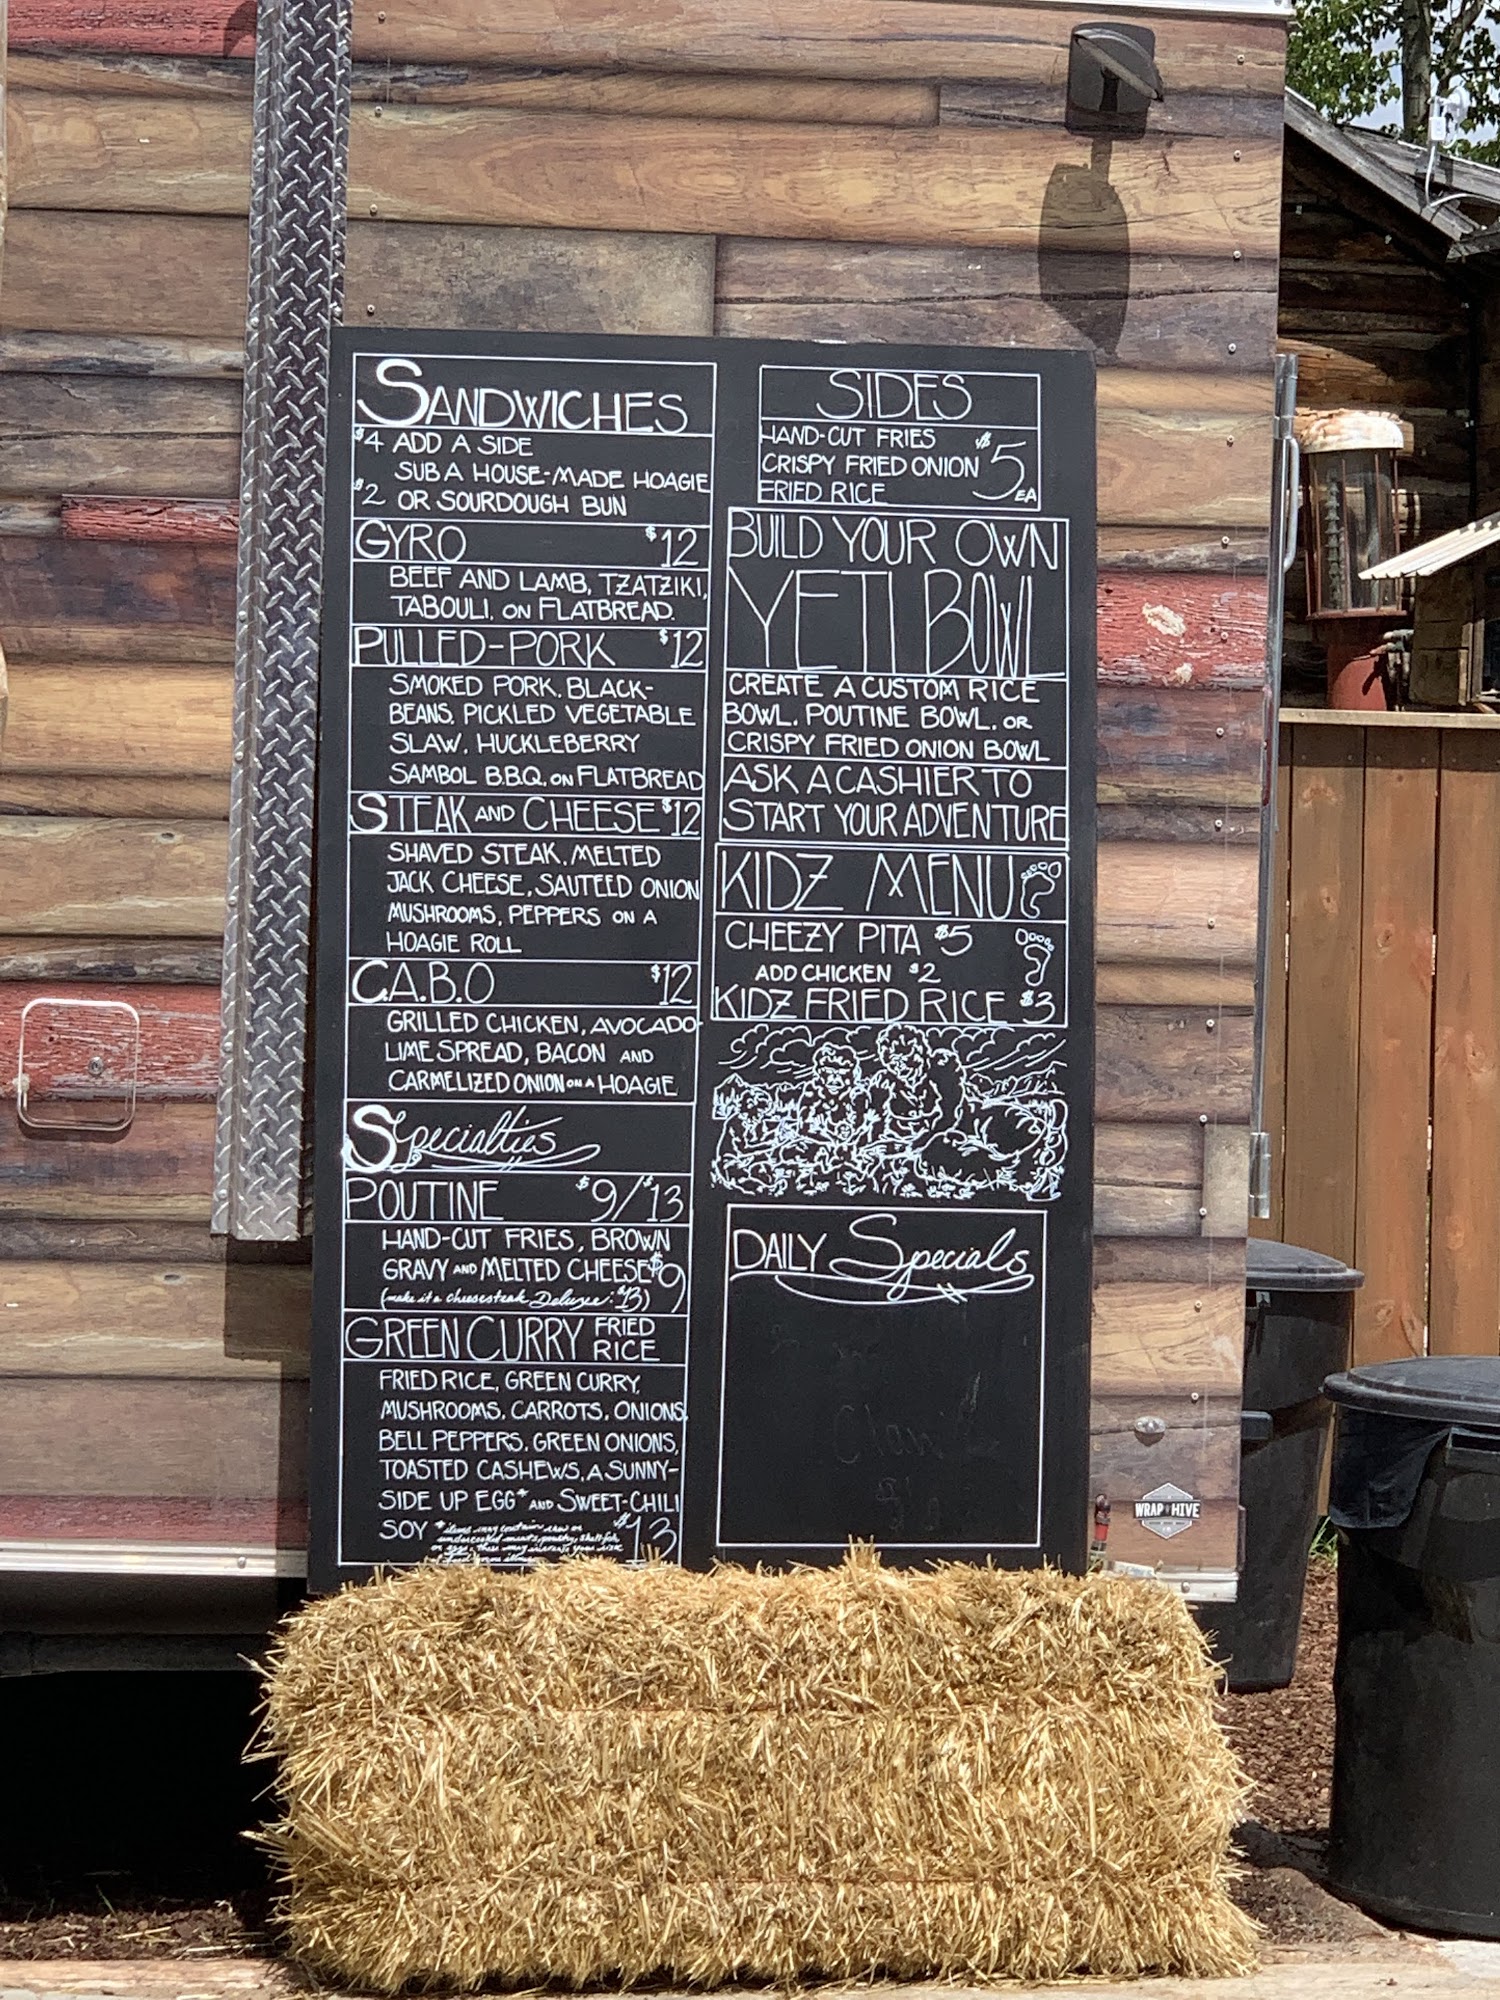 SANDWICHES
$4 ADD A SIDE
SUB A HOUSE-MADE HOAGIE
$2 OR SOURDOUGH BUN
GYRO $12
BEEF AND LAMB, TZATZIKI,
TABOULI, ON FLATBREAD.
PULLED-PORK $12
SMOKED PORK, BLACK-
BEANS, PICKLED VEGETABLE
SLAW, HUCKLEBERRY
SAMBOL B.B.Q. ON FLATBREAD
STEAK AND CHEESE $12
SHAVED STEAK, MELTED
JACK CHEESE, SAUTEED ONION
MUSHROOMS, PEPPERS ON A
HOAGIE ROLL
C.A.B.O $12
GRILLED CHICKEN, AVOCADO-
LIME SPREAD, BACON AND
CARMELIZED ONION ON A HOAGIE
Specialties
POUTINE $9/$13
HAND-CUT FRIES, BROWN
GRAVY AND MELTED CHEESE $9
(make it a cheesesteak Deluxe: $13)
GREEN CURRY FRIED
RICE
FRIED RICE, GREEN CURRY,
MUSHROOMS, CARROTS, ONIONS,
BELL PEPPERS, GREEN ONIONS,
TOASTED CASHEWS, A SUNNY-
SIDE UP EGG* AND SWEET-CHILI
SOY $13
*items may contain raw or
undercooked meats, poultry, shellfish
or eggs, these may increase your risk
SIDES
HAND-CUT FRIES
CRISPY FRIED ONION $5 EA
FRIED RICE
BUILD YOUR OWN
YETI BOWL
CREATE A CUSTOM RICE
BOWL, POUTINE BOWL, OR
CRISPY FRIED ONION BOWL
ASK A CASHIER TO
START YOUR ADVENTURE
KIDZ MENU
CHEEZY PITA $5
ADD CHICKEN $2
KIDZ FRIED RICE $3
DAILY Specials
WRAP HIVE